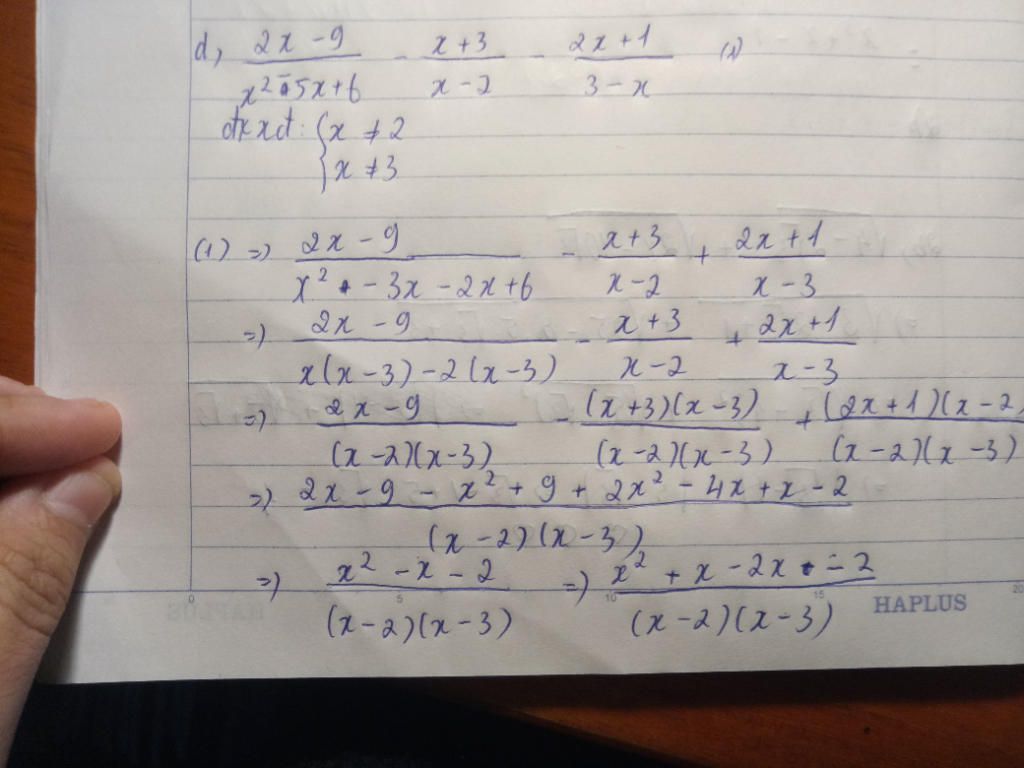 d, (2x - 9)/(x² - 5x + 6) - (x + 3)/(x - 2) - (2x + 1)/(3 - x) (1)
đkxđ: { x ≠ 2
x ≠ 3
(1) => (2x - 9)/(x² - 3x - 2x + 6) - (x + 3)/(x - 2) + (2x + 1)/(x - 3)
=> (2x - 9)/(x(x - 3) - 2(x - 3)) - (x + 3)/(x - 2) + (2x + 1)/(x - 3)
=> (2x - 9)/((x - 2)(x - 3)) - ((x + 3)(x - 3))/((x - 2)(x - 3)) + ((2x + 1)(x - 2)/((x - 2)(x - 3))
=> (2x - 9 - x² + 9 + 2x² - 4x + x - 2)/((x - 2)(x - 3))
=> (x² - x - 2)/((x - 2)(x - 3)) => (x² + x - 2x - 2)/((x - 2)(x - 3))
0 5 10 15 20
HAPLUS